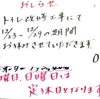 おしらせ
トイレ改修工事にて
12/23〜12/29の期間
お休みさせていただきます。
曜日、日曜日は
定休日となります